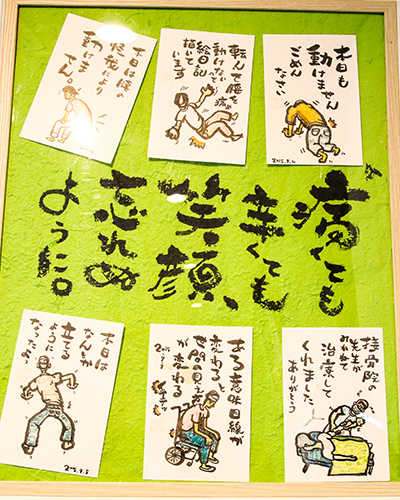 本日も
動けません
ごめん
なさい
転んで腰を痛め
動けない
絵日記
描いて
います
本日は腰の
怪我により
動けま
せん。
痛くても
辛くても
笑顔、
忘れぬ
ように。
接骨院の
先生が
みかねて
治療して
くれました
ありがとう
ある意味目線が
変わる
世間の見え方
が変わる
本日は
なんとか
立てる
ように
なったよ!